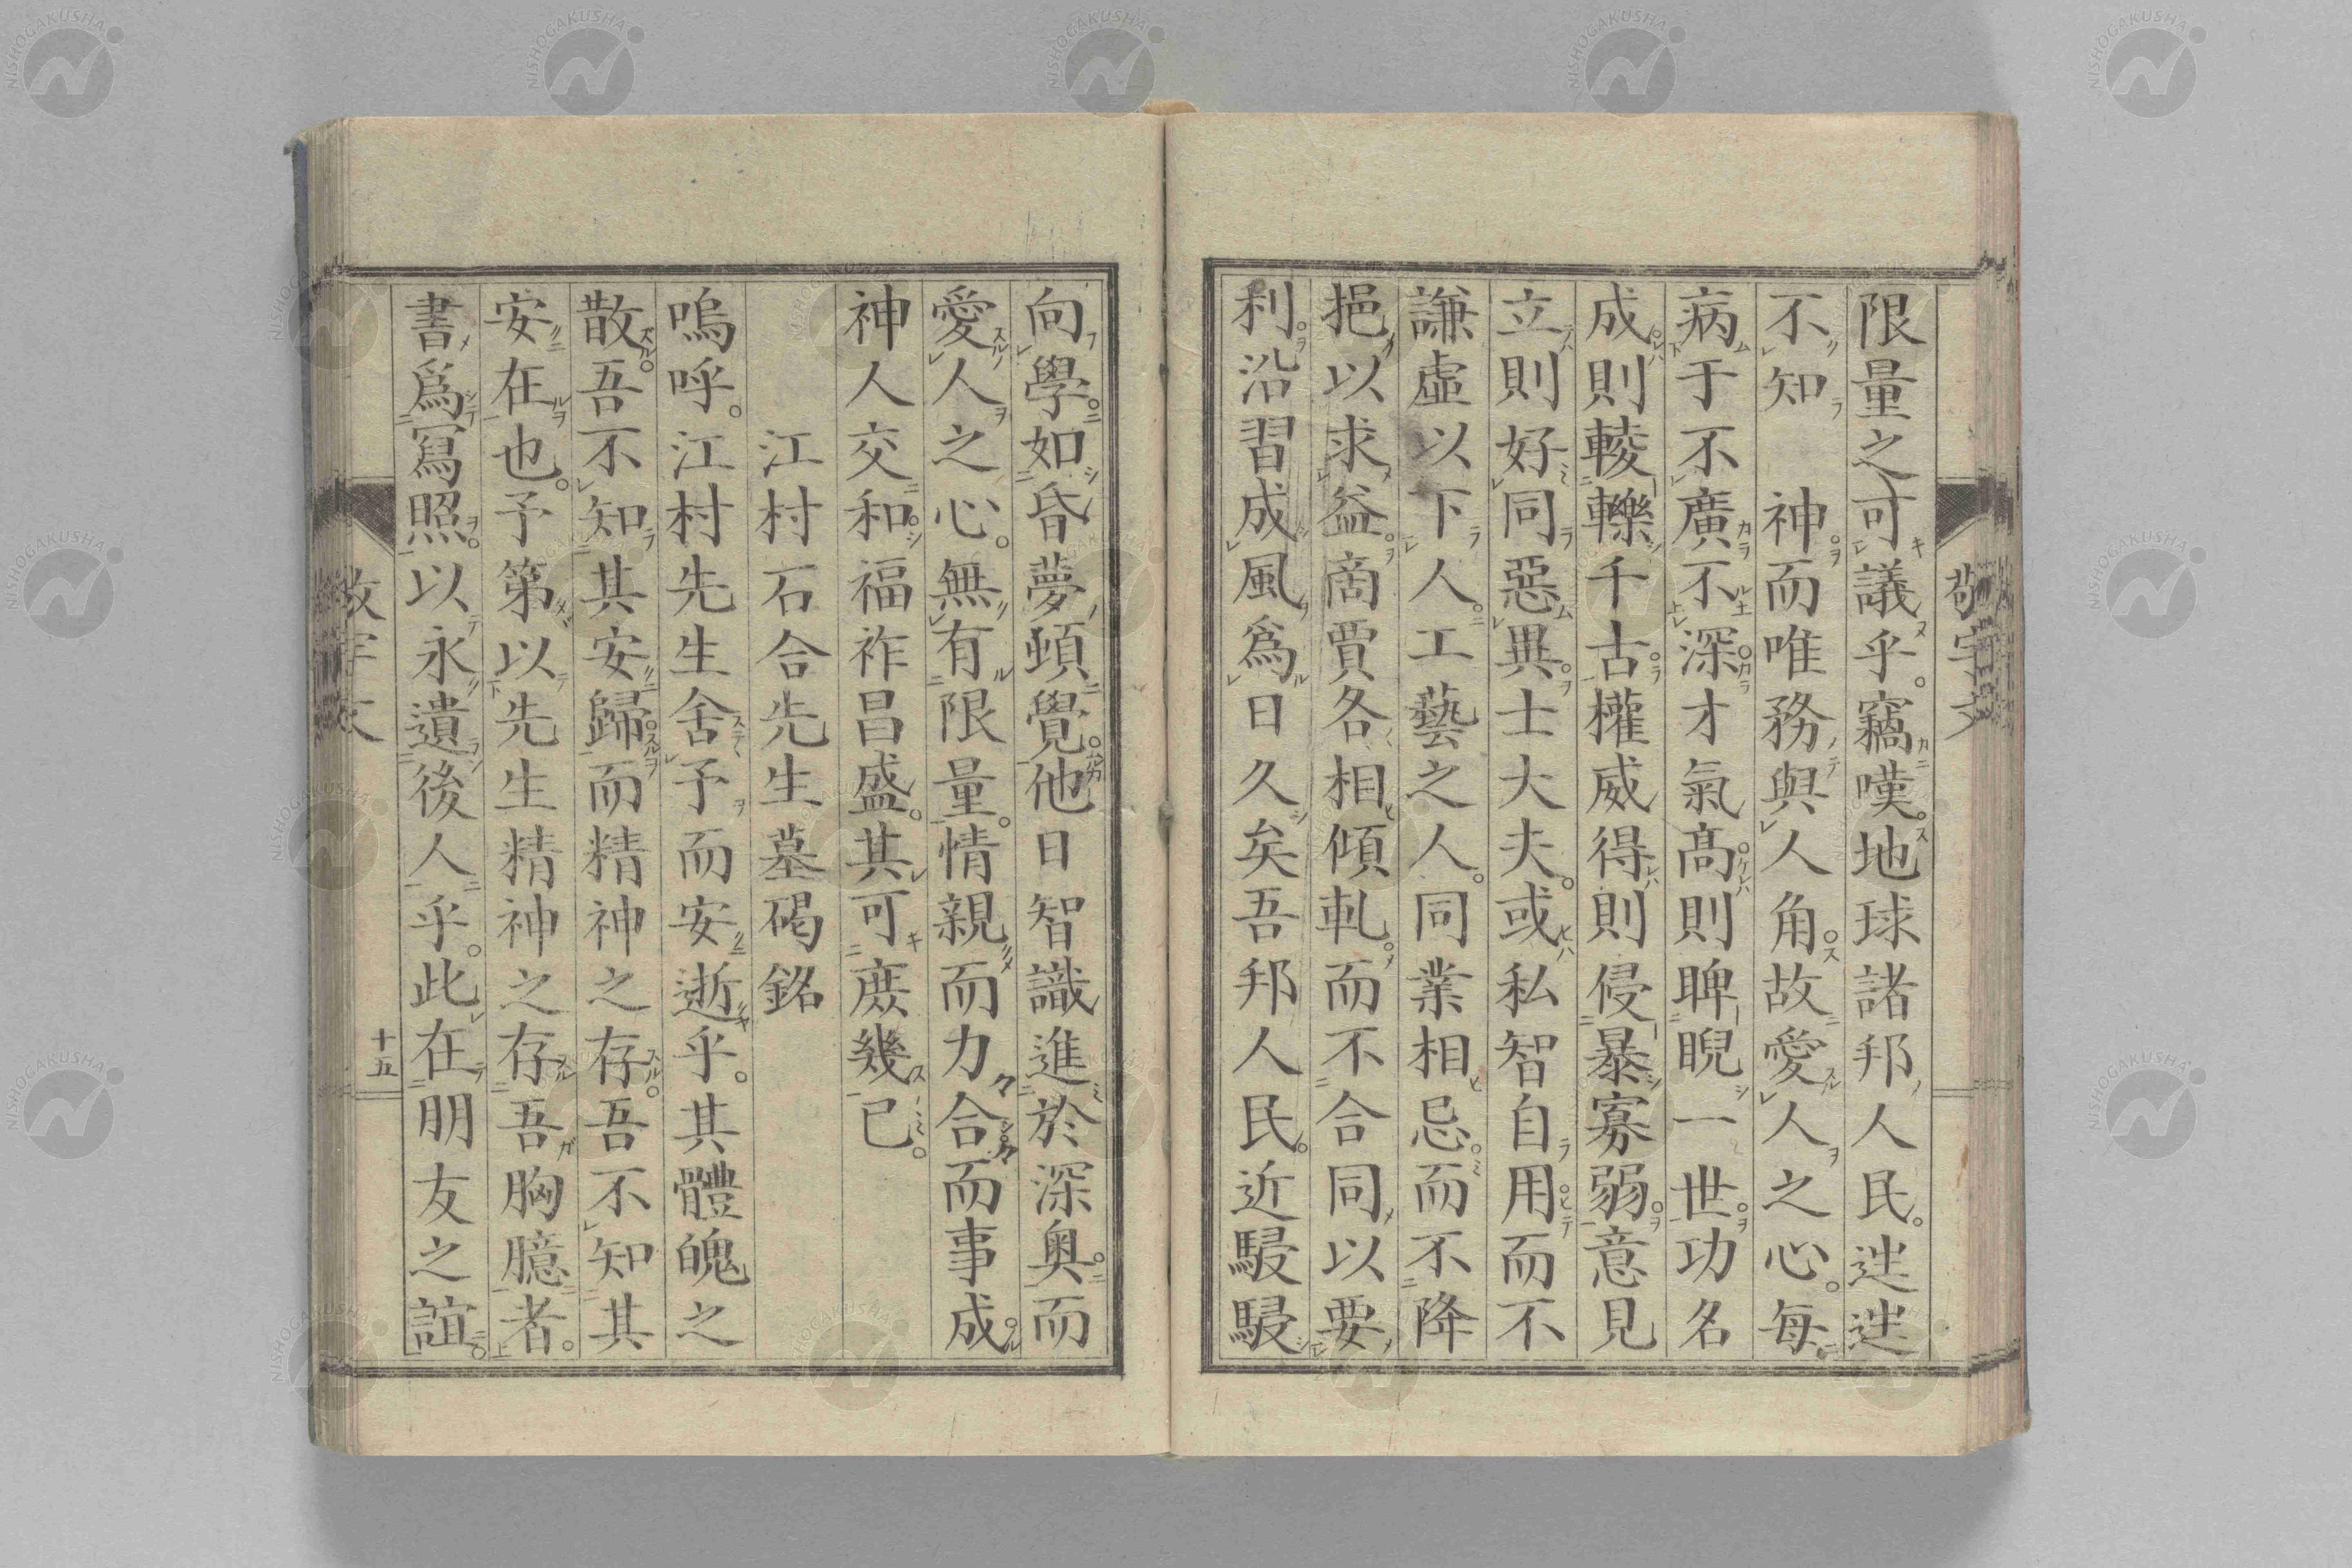 限量之可議乎。竊嘆。地球諸邦人民。迷迷
不知　神而唯務與人角故愛人之心。每
病于不廣不深才氣高則睥睨一世功名
成則轢轢千古權威得則侵暴寡弱意見
立則好同惡異士大夫。或私智自用而不
謙虛以下人。工藝之人。同業相忌。而不降
挹以求益。商賈各相傾軋。而不合同以要
利沿習成風爲日久矣吾邦人民。近駸駸
向學如昏夢頓覺他日智識進於深奧。而
愛人之心。無有限量。情親而力合而事成
神人交和福祚昌盛。其可庶幾已。
江村石合先生墓碣銘
嗚呼。江村先生舍予而安逝乎。其體魄之
散吾不知其安歸而精神之存吾不知其
安在也。予第以先生精神之存吾胸臆者。
書爲寫照。以永遺後人乎。此在朋友之誼。
敬宇文
十五
NISHOGAKUSHA